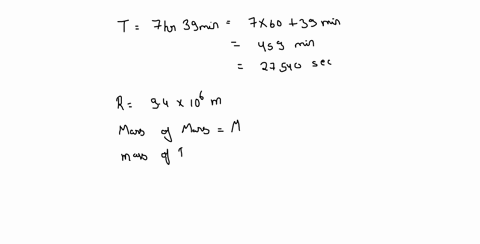 T = 7hr 39min = 7x60 + 39 min
= 459 min
= 27540 sec
R = 9.4 x 10⁶ m
Mass of Mars = M
mass of